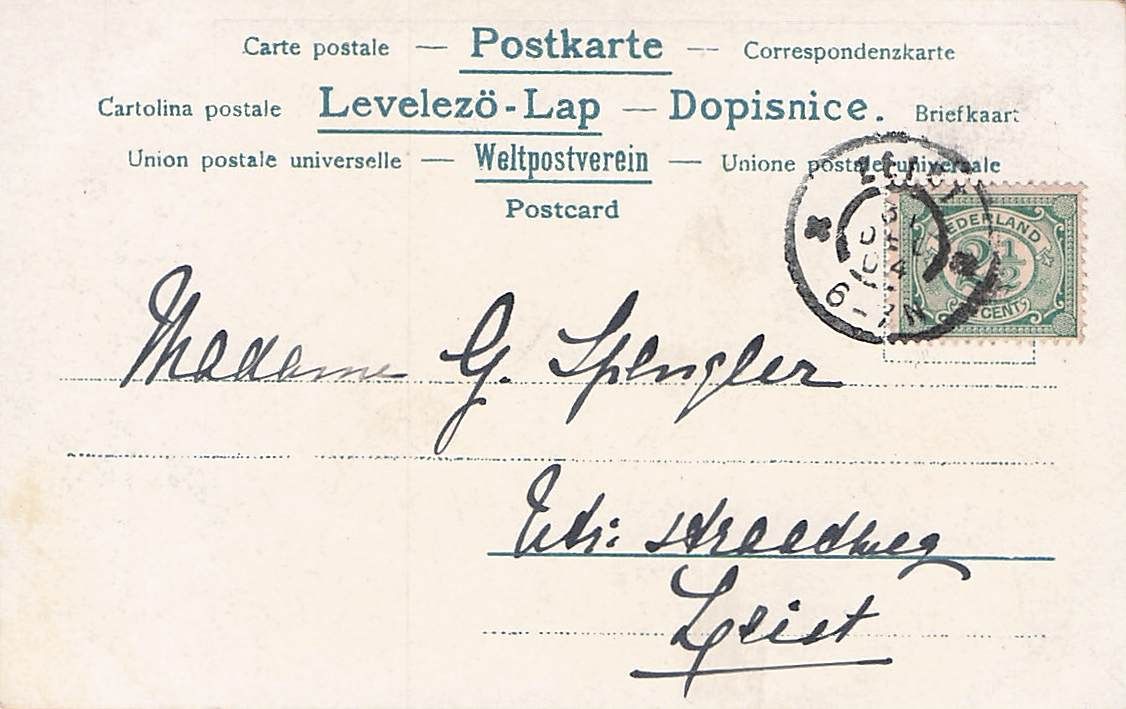 Carte postale — Postkarte — Correspondenzkarte
Cartolina postale Levelezö-Lap — Dopisnice. Briefkaart
Union postale universelle — Weltpostverein — Unione postale universale
Postcard
NEDERLAND
2½
CENT
6-7N
Madame G. Spengler
Utr: straatweg
Zeist